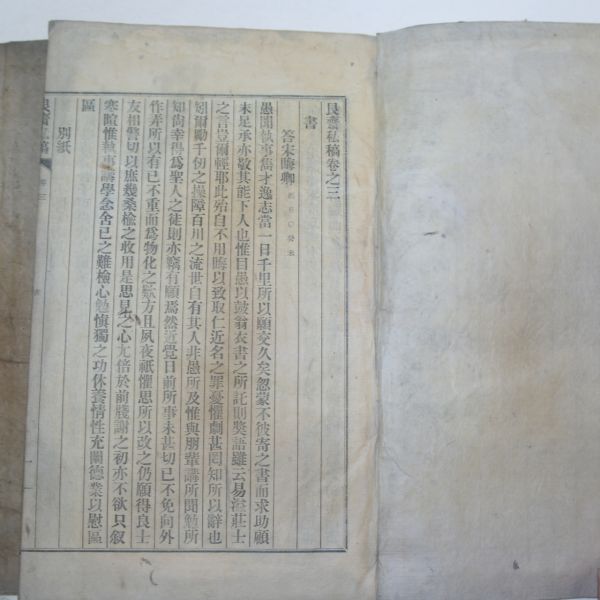 艮齋私稿卷之三
書
答宋晦卿
愚聞執事雋才逸志當一日千里所以願交久矣忽蒙不彼寄之書而求助顧
末足承亦敬其能下人也惟目愚以鼓翁衣書之所託則獎語雖云易溢莊士
之言豈爾輕耶此殆自不用晦以致取仁近名之罪憂懼劇甚罔知所以辭也
爾勵千仞之操障百川之流世自有其人非愚所及惟與朋輩講所聞勉所
知尙幸得爲聖人之徒則亦竊有願焉然近覺日前所事未甚切已不免向外
作弄所以有已不重而爲物化之歎方且夙夜祇懼思所以改之仍願得良士
友相警切以庶幾桑楡之收用是思見之心尤倍於前牋謝之初亦不欲只敍
寒暄惟執事講學念舍已之難檢心勉愼獨之功休養情性充闡德業以慰區
區
別紙
艮齋私稿
卷三